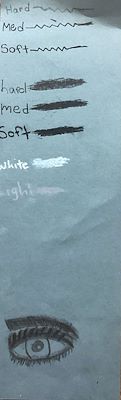 Hard
Med
Soft
hard
med
Soft
white
Light